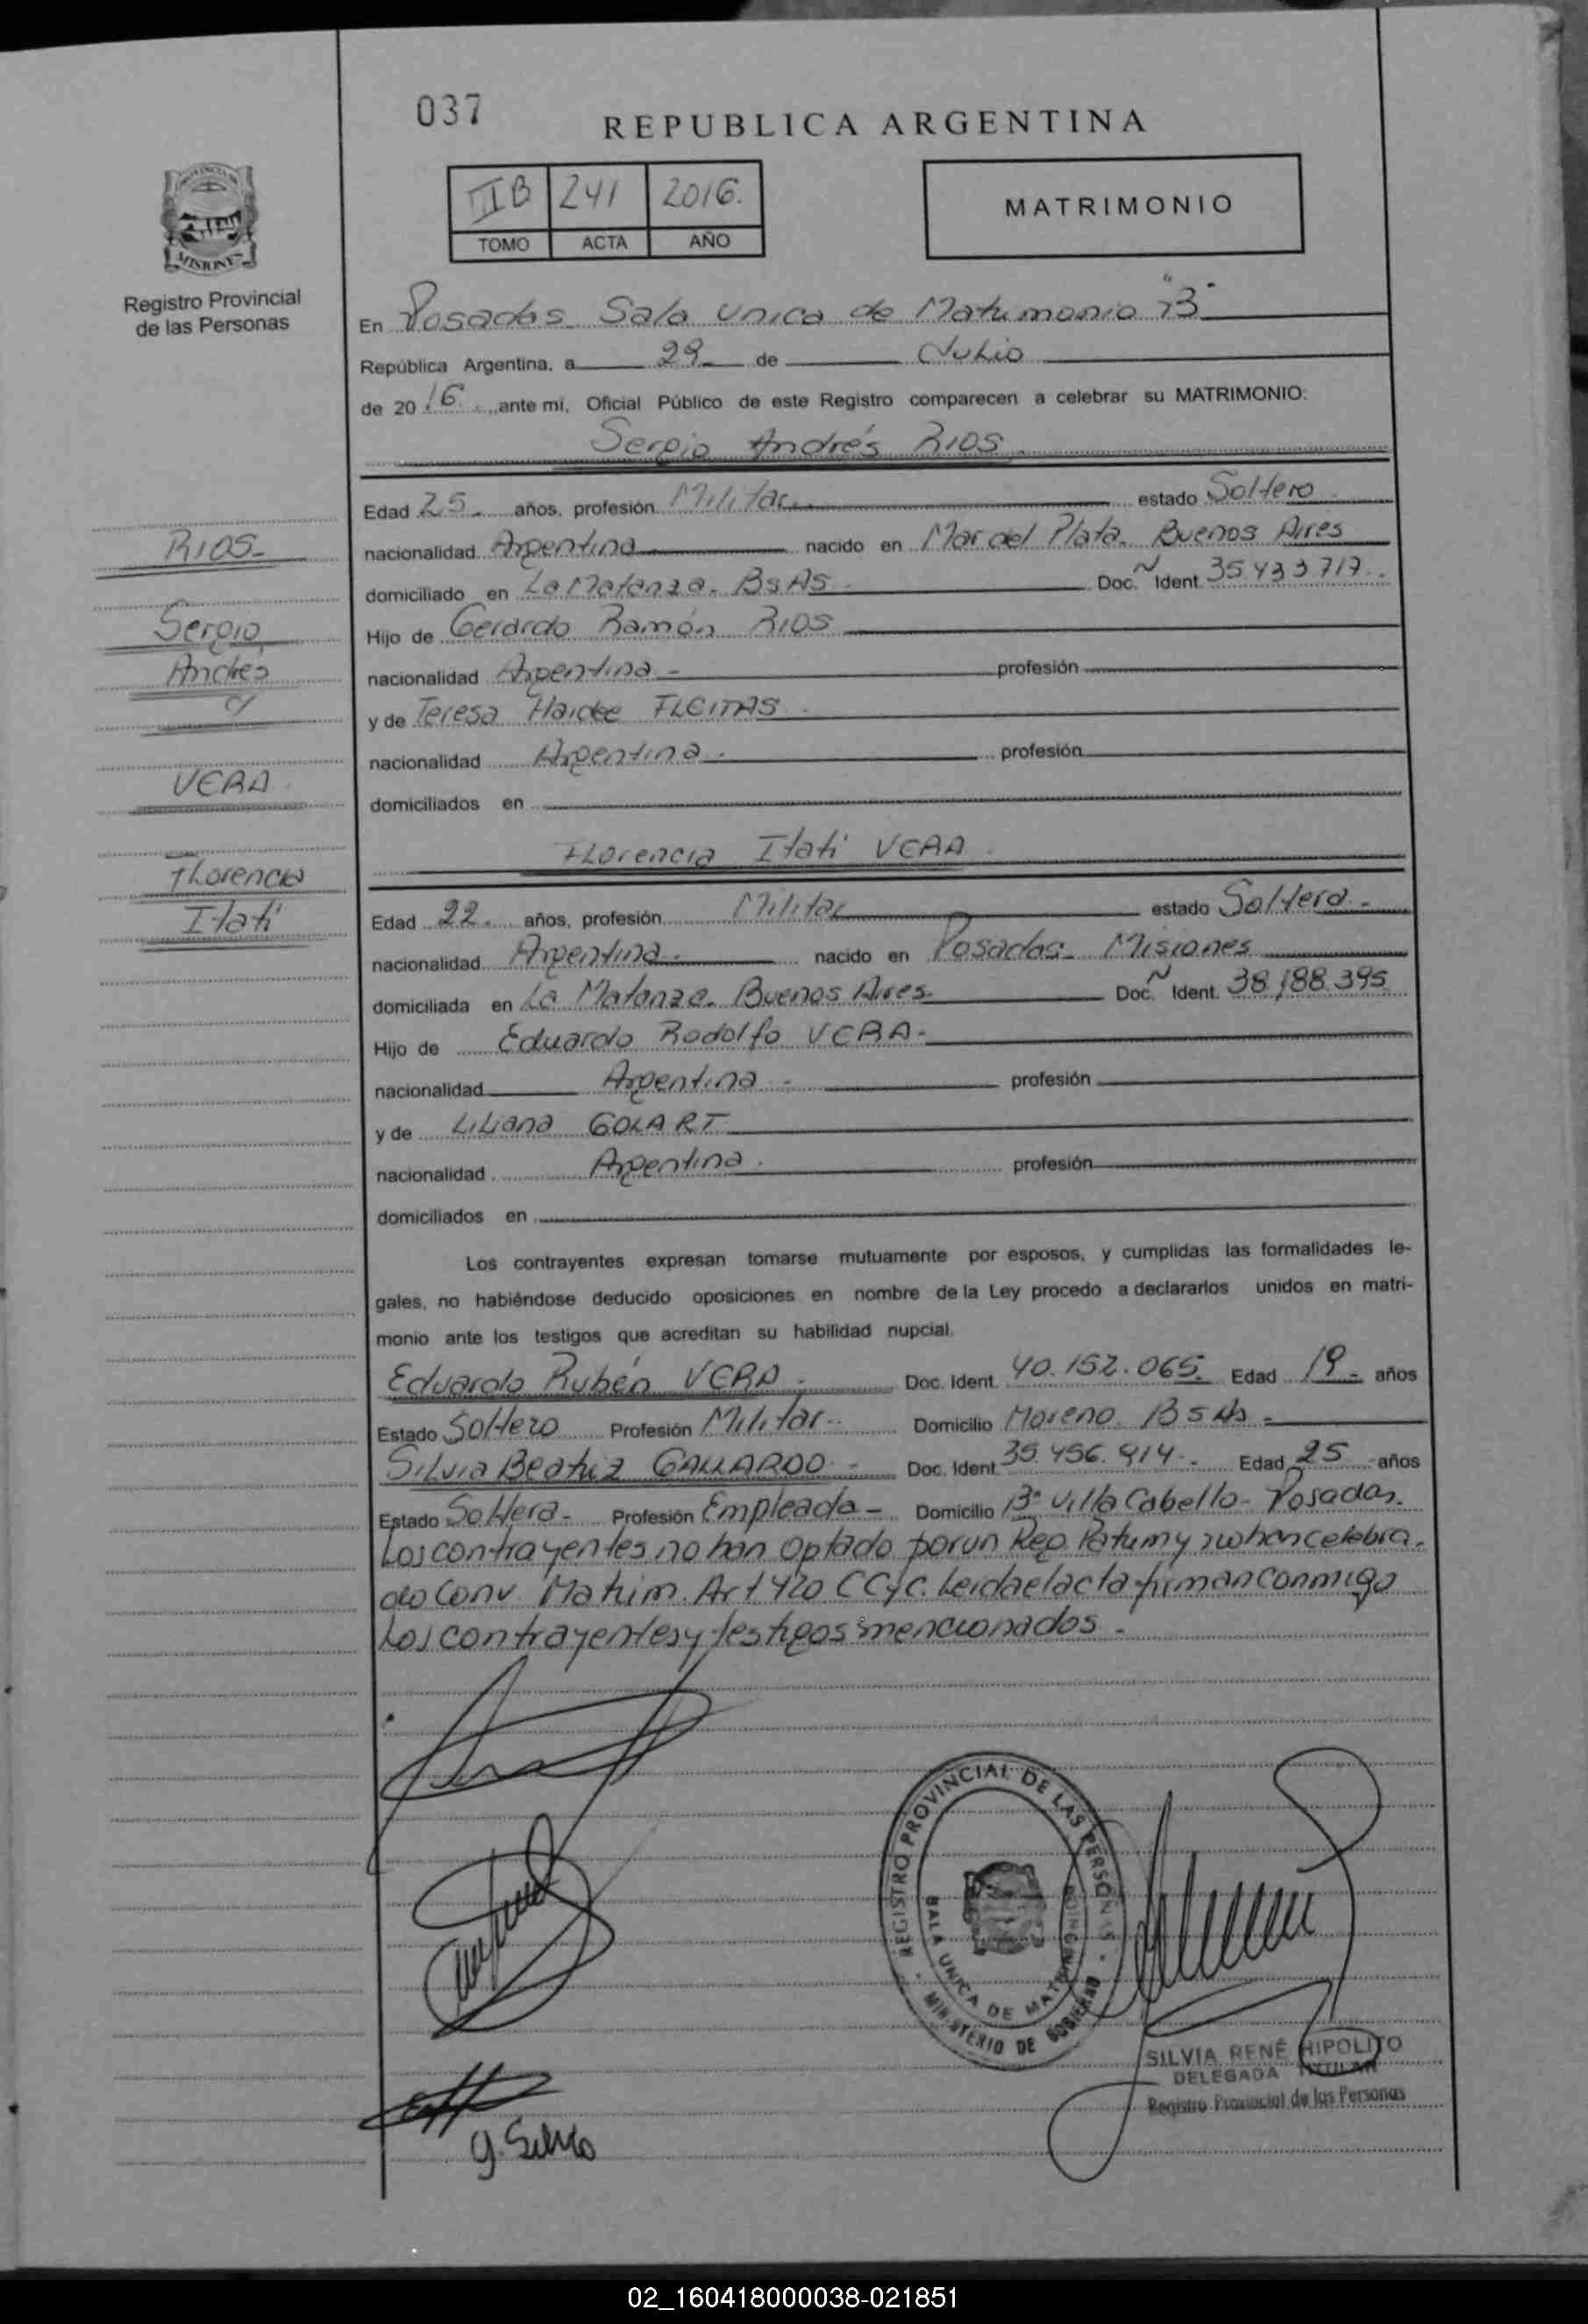 037
REPUBLICA ARGENTINA
IIB 241 2016.
TOMO ACTA AÑO
MATRIMONIO
PROVINCIA DE
MISIONES
Registro Provincial
de las Personas
En Posadas Sala Unica de Matrimonio "B"
República Argentina, a 29 de Julio
de 2016 ante mí, Oficial Público de este Registro comparecen a celebrar su MATRIMONIO:
Sergio Andrés RIOS
Edad 25 años, profesión Militar estado Soltero
nacionalidad Argentina nacido en Mar del Plata. Buenos Aires
domiciliado en La Matanza. Bs As Doc. N Ident. 35.433.717.
Hijo de Gerardo Ramón RIOS
nacionalidad Argentina profesión
y de Teresa Haidee FLEITAS
nacionalidad Argentina profesión
domiciliados en
RIOS
Sergio
Andres
c/
VERA
Florencia
Itati
Florencia Itati VERA
Edad 22. años, profesión Militar estado Soltera
nacionalidad Argentina nacido en Posadas Misiones
domiciliada en La Matanza. Buenos Aires Doc. N Ident. 38.188.395
Hijo de Eduardo Rodolfo VERA
nacionalidad Argentina profesión
y de Liliana GOLART
nacionalidad Argentina profesión
domiciliados en
Los contrayentes expresan tomarse mutuamente por esposos, y cumplidas las formalidades le-
gales, no habiéndose deducido oposiciones en nombre de la Ley procedo a declararlos unidos en matri-
monio ante los testigos que acreditan su habilidad nupcial.
Eduardo Rubén VERA Doc. Ident. 40.152.065. Edad 19 años
Estado Soltero Profesión Militar Domicilio Moreno Bs As
Silvia Beatriz GALLARDO Doc. Ident. 35.456.914 Edad 25 años
Estado Soltera Profesión Empleada Domicilio Bº Villa Cabello - Posadas.
Los contrayentes no han optado por un Reg. Patrim y no han celebra-
do Conv. Matrim. Art 420 CCyC. Leida el acta firman conmigo
Los contrayentes y testigos mencionados.
REGISTRO PROVINCIAL DE LAS PERSONAS
SALA UNICA DE MATRIMONIOS
MINISTERIO DE GOBIERNO
SILVIA RENÉ HIPOLITO
DELEGADA TITULAR
Registro Provincial de las Personas
G. Silvia
02_160418000038-021851